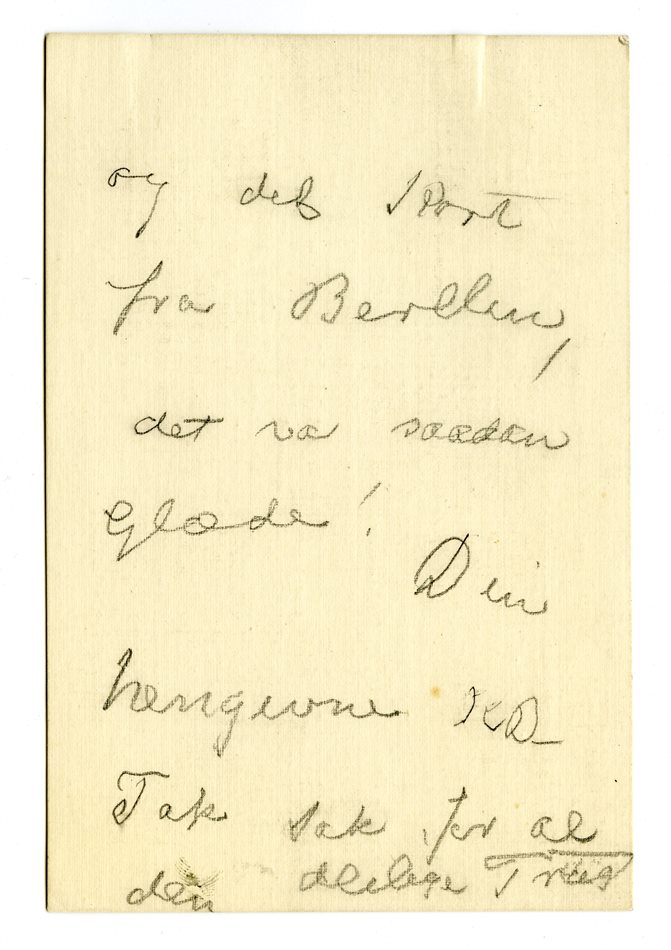 og det Kort
fra Berllin,
det var saadan
Glæde!
Din
hengivne KD
Tak tak for al
den deilige